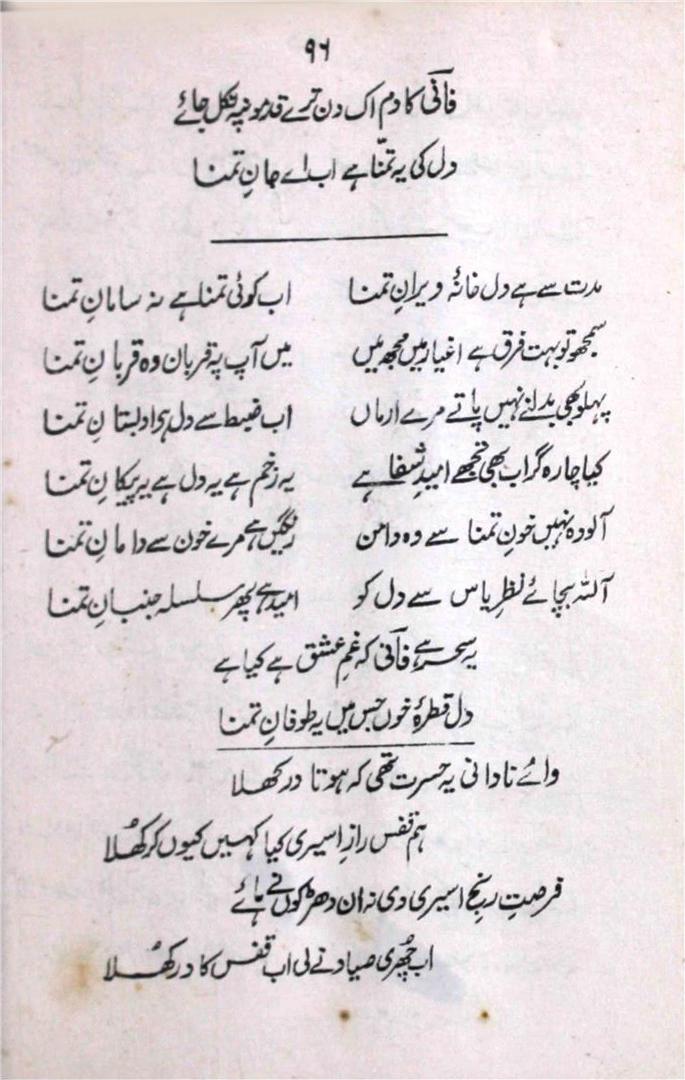 ۹۶
فانیؔ کا دم اک دن ترے قدمونپہ نکل جائے
دل کی یہ تمنّا ہے اب اے جانِ تمنا
مدت سے ہے دل خانۂ ویرانِ تمنا اب کوئی تمنا ہے نہ سامانِ تمنا
سمجھو تو بہت فرق ہے اغیار میں مجھ میں میں آپ پہ قربان وہ قربانِ تمنا
پہلو بھی بدلنے نہیں پاتے مرے ارماں اب ضبط سے دل ہوا دبستانِ تمنا
کیا چارہ گر اب بھی تجھے امیدِ شفا ہے یہ زخم ہے یہ دل ہے یہ پیکانِ تمنا
آلودہ نہیں خونِ تمنا سے وہ دامن رنگیں ہے مرے خون سے دامانِ تمنا
اللہ بچائے نظرِ یاس سے دل کو امید ہے پھر سلسلہ جنبانِ تمنا
یہ سحر ہے فانیؔ کہ غمِ عشق ہے کیا ہے
دل قطرۂ خوں جس میں یہ طوفانِ تمنا
وائے نادانی یہ حسرت تھی کہ ہوتا در کھلا
ہم قفس رازِ اسیری کیا کہیں کیوں کر کھُلا
فرصتِ رنجِ اسیری دی نہ ان دھڑکوں نے ہائے
اب چھُری صیاد نے لی اب قفس کا در کھُلا